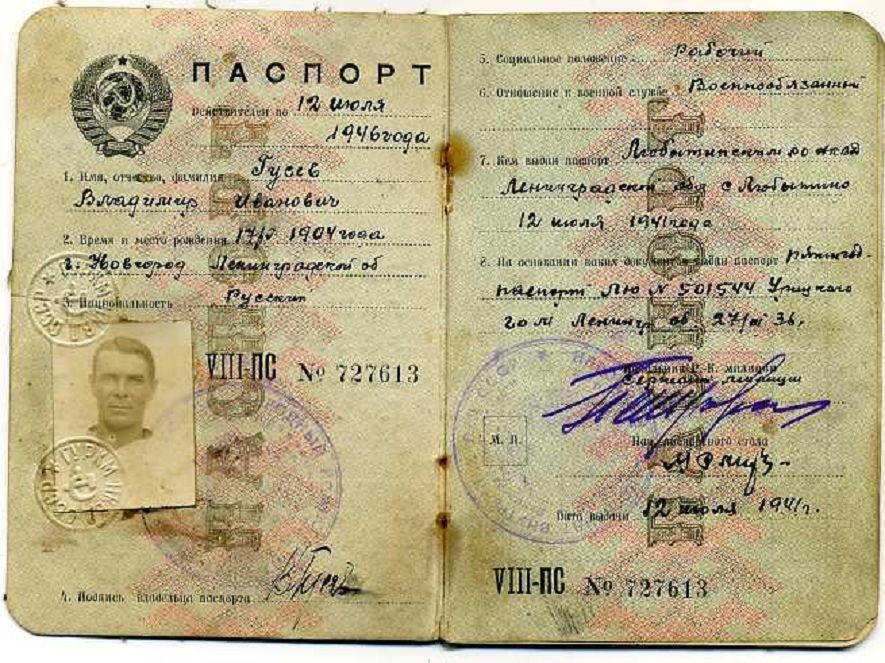 ПАСПОРТ
Действителен по 12 июля
1946 года
1. Имя, отчество, фамилия Гусев
Владимир Иванович
2. Время и место рождения 1904 года
г. Новгород Ленинградской об
3. Национальность Русский
VIII-ПС № 727613
4. Подпись владельца паспорта
5. Социальное положение Рабочий
6. Отношение к военной службе Военнообязанный
7. Кем выдан паспорт Любытинским ро нквд
Ленинградской обл с Любытино
12 июля 1941 года
8. На основании каких документов выдан паспорт
паспорт ЛЮ N 501544 Урицкого
го м Ленингр об 27/ 36.
Начальник Р.-К. милиции
Сержант милиции
М. П.
Нач. паспортного стола
Дата выдачи 12 июля 1941 г.
VIII-ПС № 727613